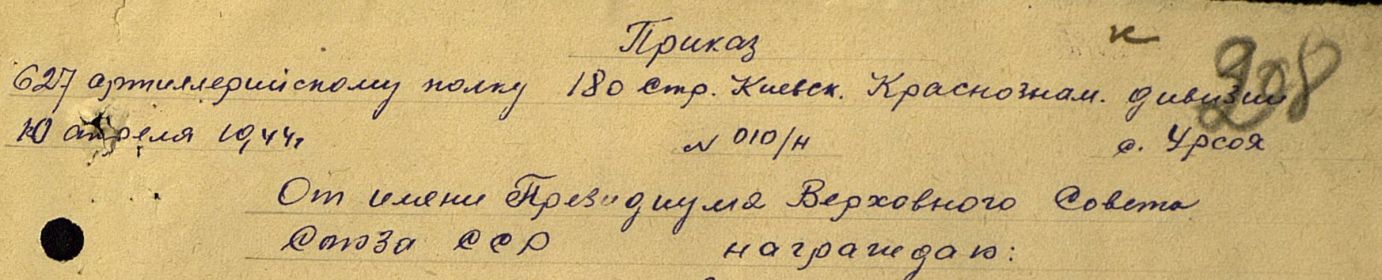 Приказ к
208
627 артиллерийскому полку 180 стр. Киевск. Краснознам. дивизии
10 апреля 1944г N 010/н с. Урсоя
От имени Президиума Верховного Совета
Союза ССР награждаю: